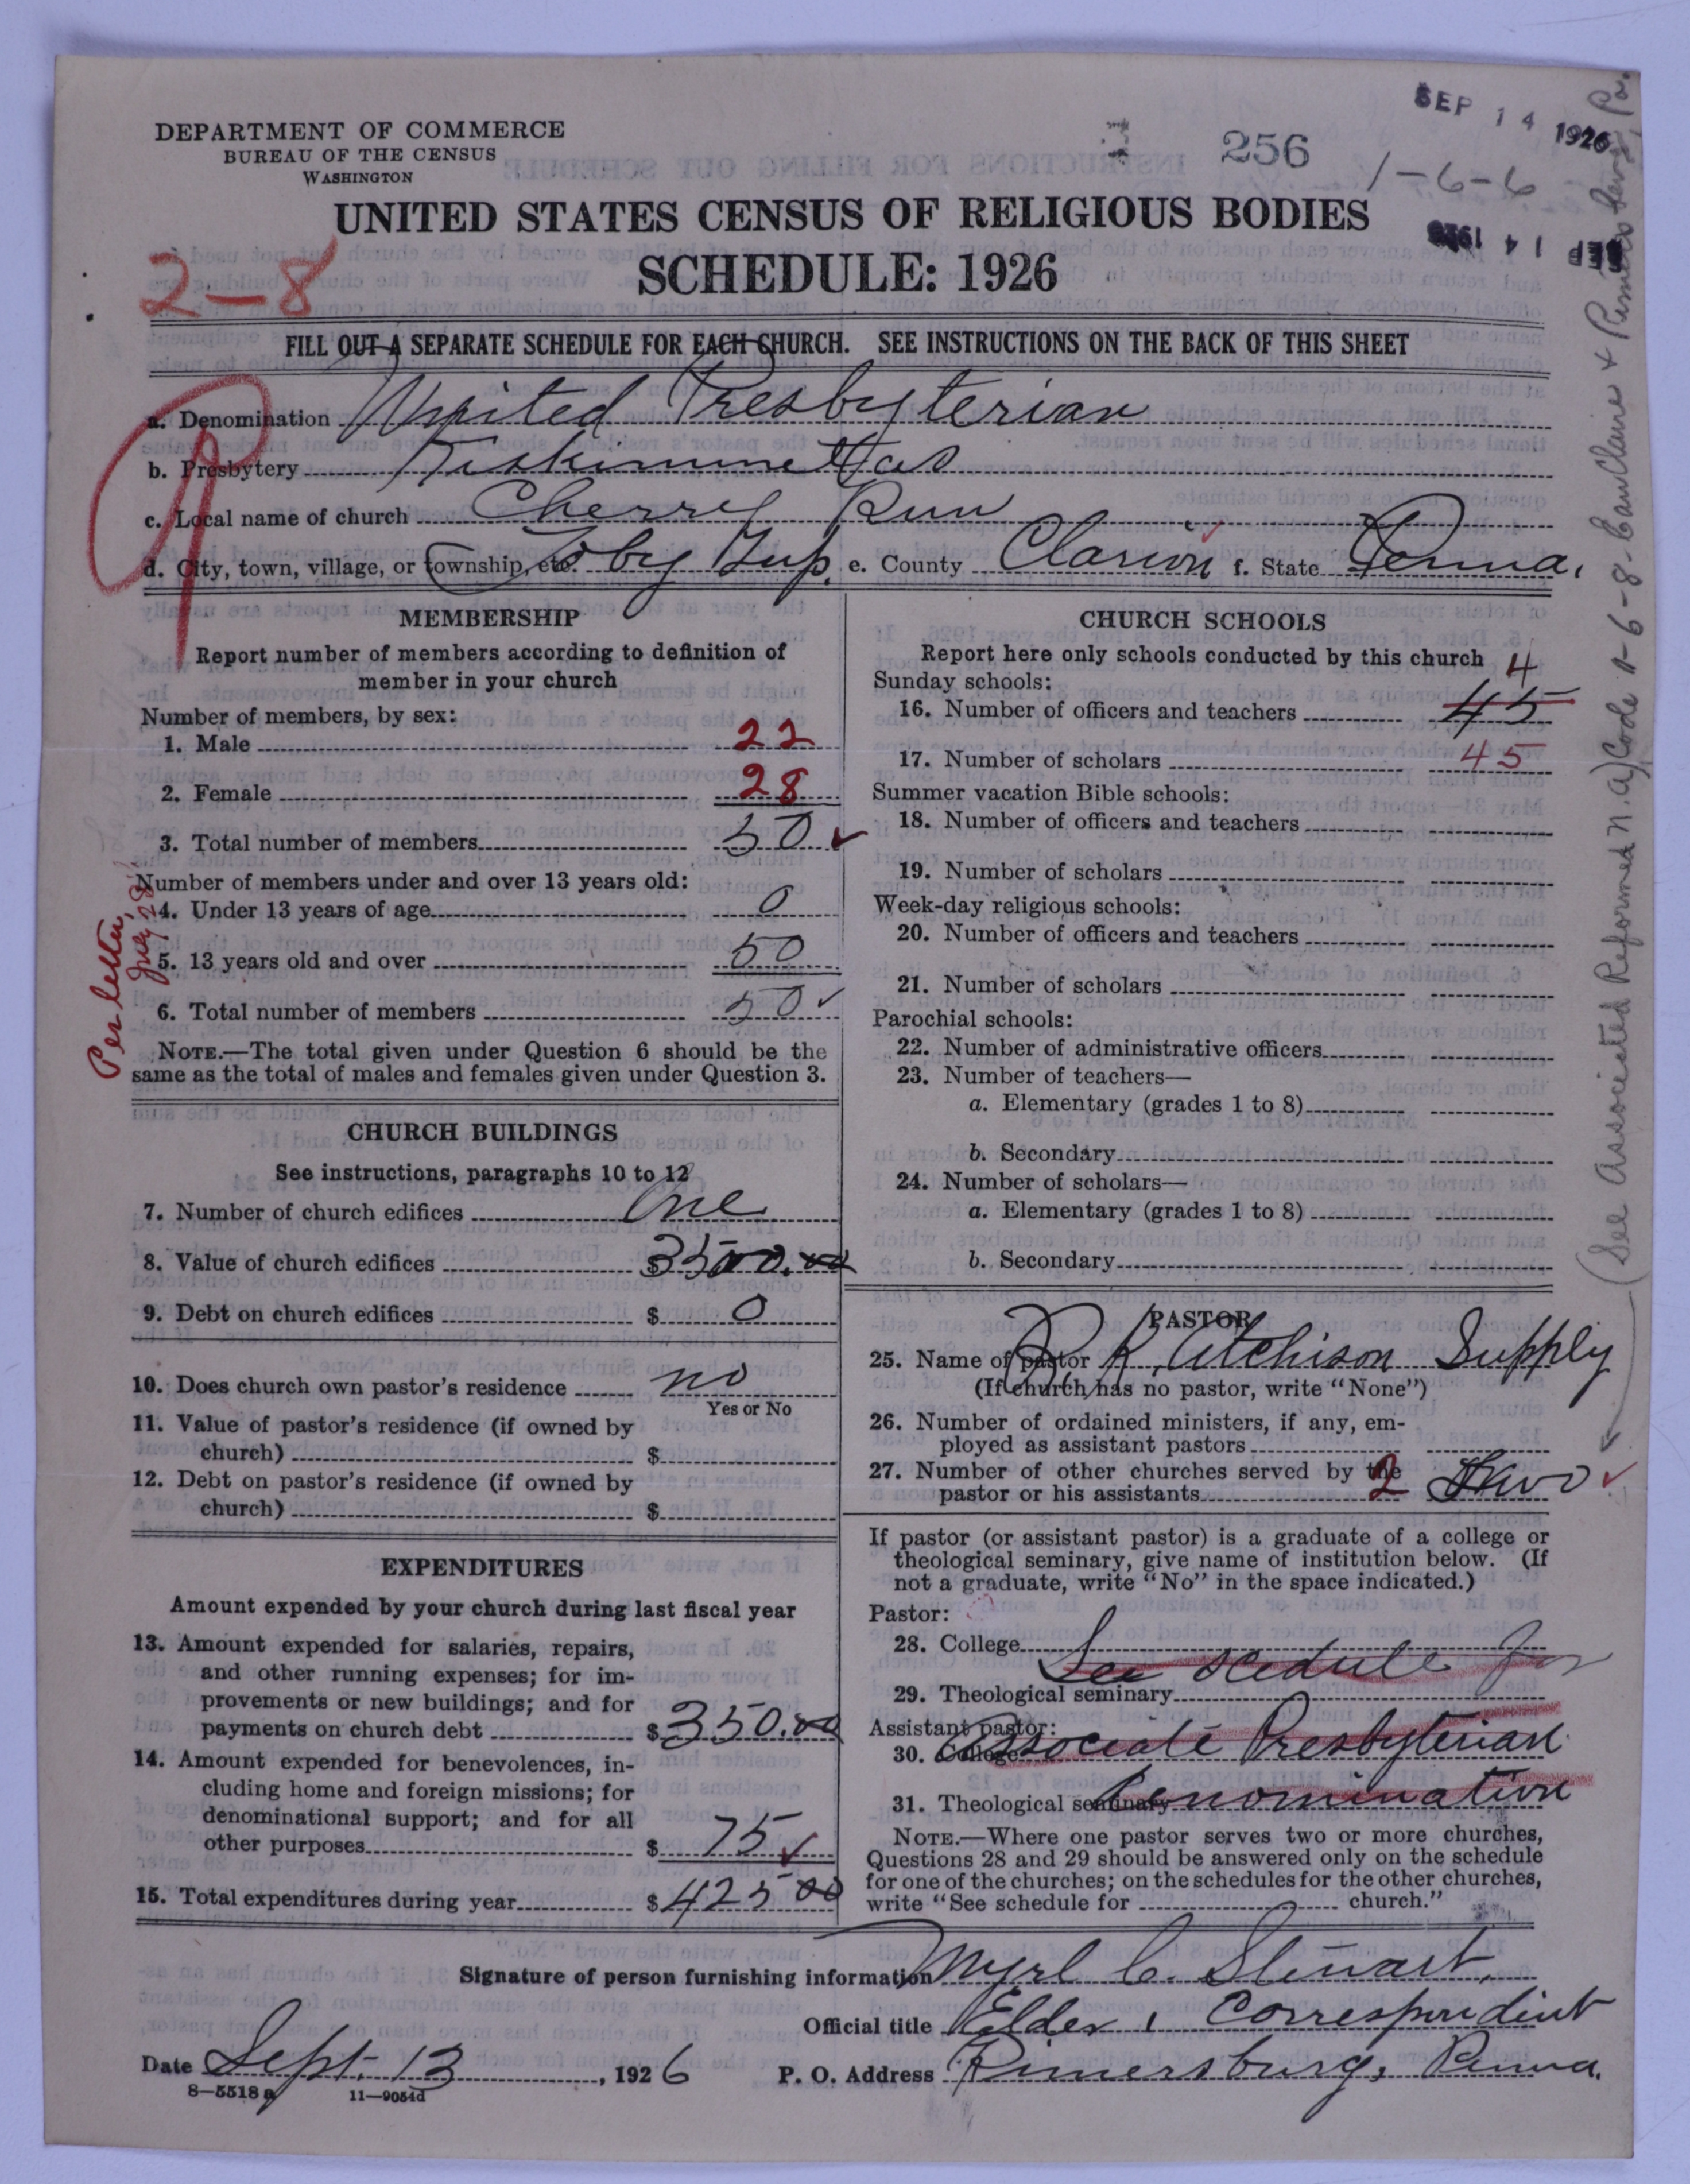 SEP 14 1926
DEPARTMENT OF COMMERCE
BUREAU OF THE CENSUS
WASHINGTON
256
1-6-6
UNITED STATES CENSUS OF RELIGIOUS BODIES
SCHEDULE: 1926
2-8
FILL OUT A SEPARATE SCHEDULE FOR EACH CHURCH. SEE INSTRUCTIONS ON THE BACK OF THIS SHEET
a. Denomination United Presbyterian
b. Presbytery Kiskiminetas
c. Local name of church Cherry Run
d. City, town, village, or township, etc. Toby Twp. e. County Clarion f. State Penna.
MEMBERSHIP
Report number of members according to definition of
member in your church
Number of members, by sex:
1. Male 22
2. Female 28
3. Total number of members 50
Number of members under and over 13 years old:
4. Under 13 years of age 0
5. 13 years old and over 50
6. Total number of members 50
NOTE.—The total given under Question 6 should be the
same as the total of males and females given under Question 3.
Per letter,
July 28
CHURCH BUILDINGS
See instructions, paragraphs 10 to 12
7. Number of church edifices one
8. Value of church edifices $3500.00
9. Debt on church edifices $ 0
10. Does church own pastor's residence no
Yes or No
11. Value of pastor's residence (if owned by
church) $
12. Debt on pastor's residence (if owned by
church) $
EXPENDITURES
Amount expended by your church during last fiscal year
13. Amount expended for salaries, repairs,
and other running expenses; for im-
provements or new buildings; and for
payments on church debt $350.00
14. Amount expended for benevolences, in-
cluding home and foreign missions; for
denominational support; and for all
other purposes $ 75
15. Total expenditures during year $425 00
CHURCH SCHOOLS
Report here only schools conducted by this church
Sunday schools: 4
16. Number of officers and teachers 45
17. Number of scholars 45
Summer vacation Bible schools:
18. Number of officers and teachers
19. Number of scholars
Week-day religious schools:
20. Number of officers and teachers
21. Number of scholars
Parochial schools:
22. Number of administrative officers
23. Number of teachers—
a. Elementary (grades 1 to 8)
b. Secondary
24. Number of scholars—
a. Elementary (grades 1 to 8)
b. Secondary
PASTOR
25. Name of pastor R. K. Atchison Supply
(If church has no pastor, write "None")
26. Number of ordained ministers, if any, em-
ployed as assistant pastors
27. Number of other churches served by the
pastor or his assistants 2 two
If pastor (or assistant pastor) is a graduate of a college or
theological seminary, give name of institution below. (If
not a graduate, write "No" in the space indicated.)
Pastor:
28. College
See scedule for
29. Theological seminary
Assistant pastor:
30. College Associate Presbyterian
31. Theological seminary Denomination
NOTE.—Where one pastor serves two or more churches,
Questions 28 and 29 should be answered only on the schedule
for one of the churches; on the schedules for the other churches,
write "See schedule for church."
(See Associated Reformed n.a) Code 1-6-8- Eau Claire & Pa.
Signature of person furnishing information Myrl C. Stewart.
Official title Elder, Correspondent
Date Sept. 13, 1926 P. O. Address Rimersburg, Penna.
8—5518 a 11—9054d